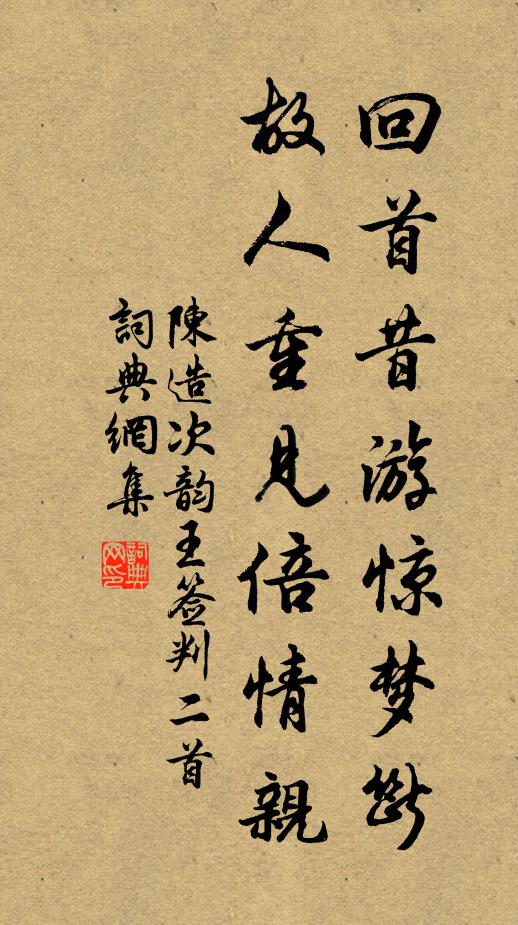 回首昔游惊梦断
故人重见倍情親
陳造次韵王签判二首
詞典網集
詞典网印